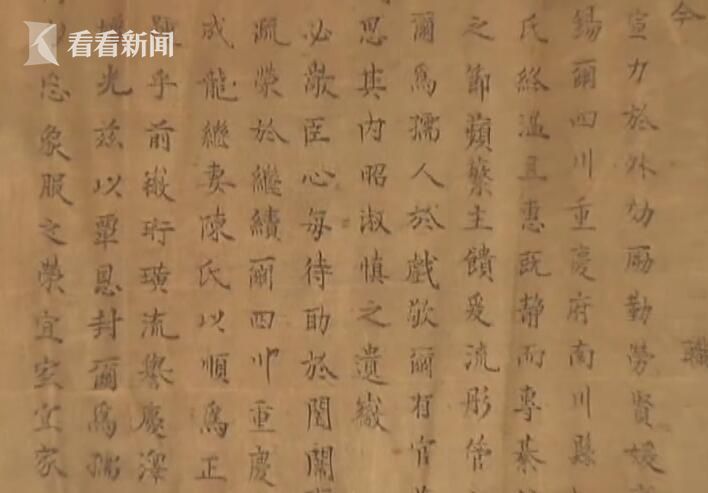 看看新闻
今
職
宣力於外効勵勤勞賢媛
錫爾四川重慶府南川縣
氏終溫且惠既靜而專綦
之節蘋蘩主饋爰流彤管
爾爲孺人於戲敬爾有官
思其內昭淑慎之遺徽
必敬臣心每待助於閨闈
疏榮於繼續爾四川重慶
成龍繼妻陳氏以順爲正
乎前徽珩璜流譽慶澤
光兹以覃恩封爾爲孺
象服之榮宜室宜家